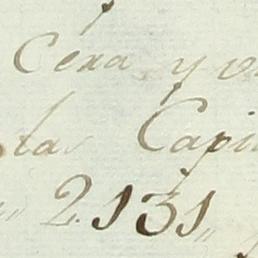 Cera y
las Capi
2131